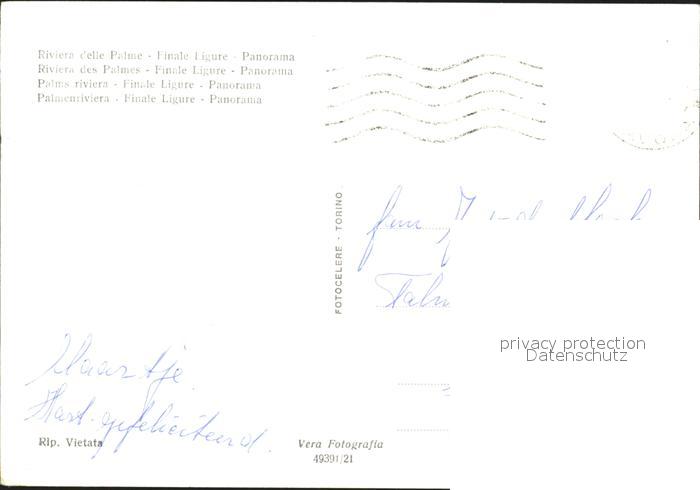 Riviera delle Palme - Finale Ligure - Panorama
Riviera des Palmes - Finale Ligure - Panorama
Palms riviera - Finale Ligure - Panorama
Palmenriviera - Finale Ligure - Panorama
FOTOCELERE - TORINO
fam
privacy protection
Datenschutz
Hart. gefeliciteerd.
Rip. Vietata
Vera Fotografia
49391/21